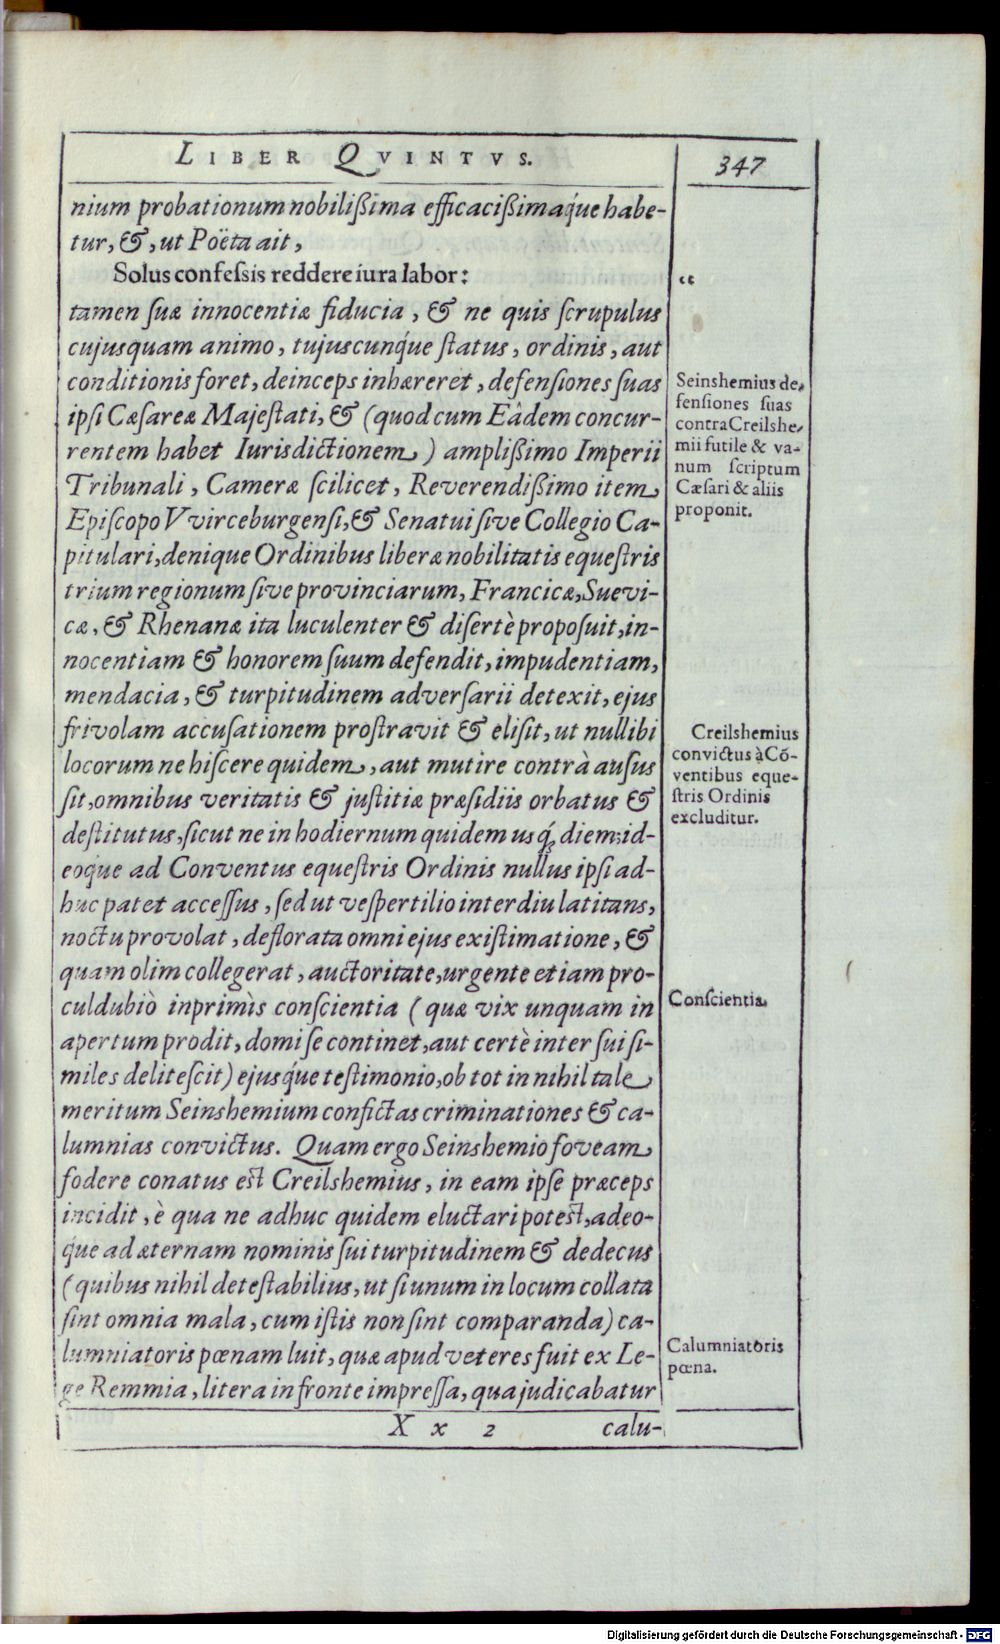 LIBER QVINTVS.
347
nium probationum nobilißima efficacißimaq́ue habe-
tur, &, ut Poëta ait,
Solus confessis reddere iura labor:
“
tamen suæ innocentiæ fiducia, & ne quis scrupulus
cujusquam animo, tujuscunq́ue status, ordinis, aut
conditionis foret, deinceps inhæreret, defensiones suas
ipsi Cæsareæ Majestati, & (quod cum Eâdem concur-
rentem habet Iurisdictionem) amplißimo Imperii
Tribunali, Cameræ scilicet, Reverendißimo item
Episcopo Vvirceburgensi, & Senatui sive Collegio Ca-
pitulari, denique Ordinibus liberæ nobilitatis equestris
trium regionum sive provinciarum, Francicæ, Suevi-
cæ, & Rhenanæ ita luculenter & disertè proposuit, in-
nocentiam & honorem suum defendit, impudentiam,
mendacia, & turpitudinem adversarii detexit, ejus
frivolam accusationem prostravit & elisit, ut nullibi
locorum ne hiscere quidem, aut mutire contrà ausus
sit, omnibus veritatis & justitiæ præsidiis orbatus &
destitutus, sicut ne in hodiernum quidem usq́; diem; id-
eoq́ue ad Conventus equestris Ordinis nullus ipsi ad-
huc patet accessus, sed ut vespertilio interdiu latitans,
noctu provolat, deflorata omni ejus existimatione, &
quam olim collegerat, auctoritate, urgente etiam pro-
culdubiò inprimìs conscientia (quæ vix unquam in
apertum prodit, domi se continet, aut certè inter sui si-
miles delitescit) ejusq́ue testimonio, ob tot in nihil tale
meritum Seinshemium confictas criminationes & ca-
lumnias convictus. Quam ergo Seinshemio foveam
fodere conatus est Creilshemius, in eam ipse præceps
incidit, è qua ne adhuc quidem eluctari potest, adeo-
q́ue ad æternam nominis sui turpitudinem & dedecus
(quibus nihil detestabilius, ut si unum in locum collata
sint omnia mala, cum istis non sint comparanda) ca-
lumniatoris pœnam luit, quæ apud veteres fuit ex Le-
ge Remmia, litera in fronte impressa, qua judicabatur
X x 2
calu-
Seinshemius de-
fensiones suas
contra Creilshe-
mii futile & va-
num scriptum
Cæsari & aliis
proponit.
Creilshemius
convictus à Cō-
ventibus eque-
stris Ordinis
excluditur.
Conscientia.
Calumniatoris
pœna.
Digitalisierung gefördert durch die Deutsche Forschungsgemeinschaft - DFG